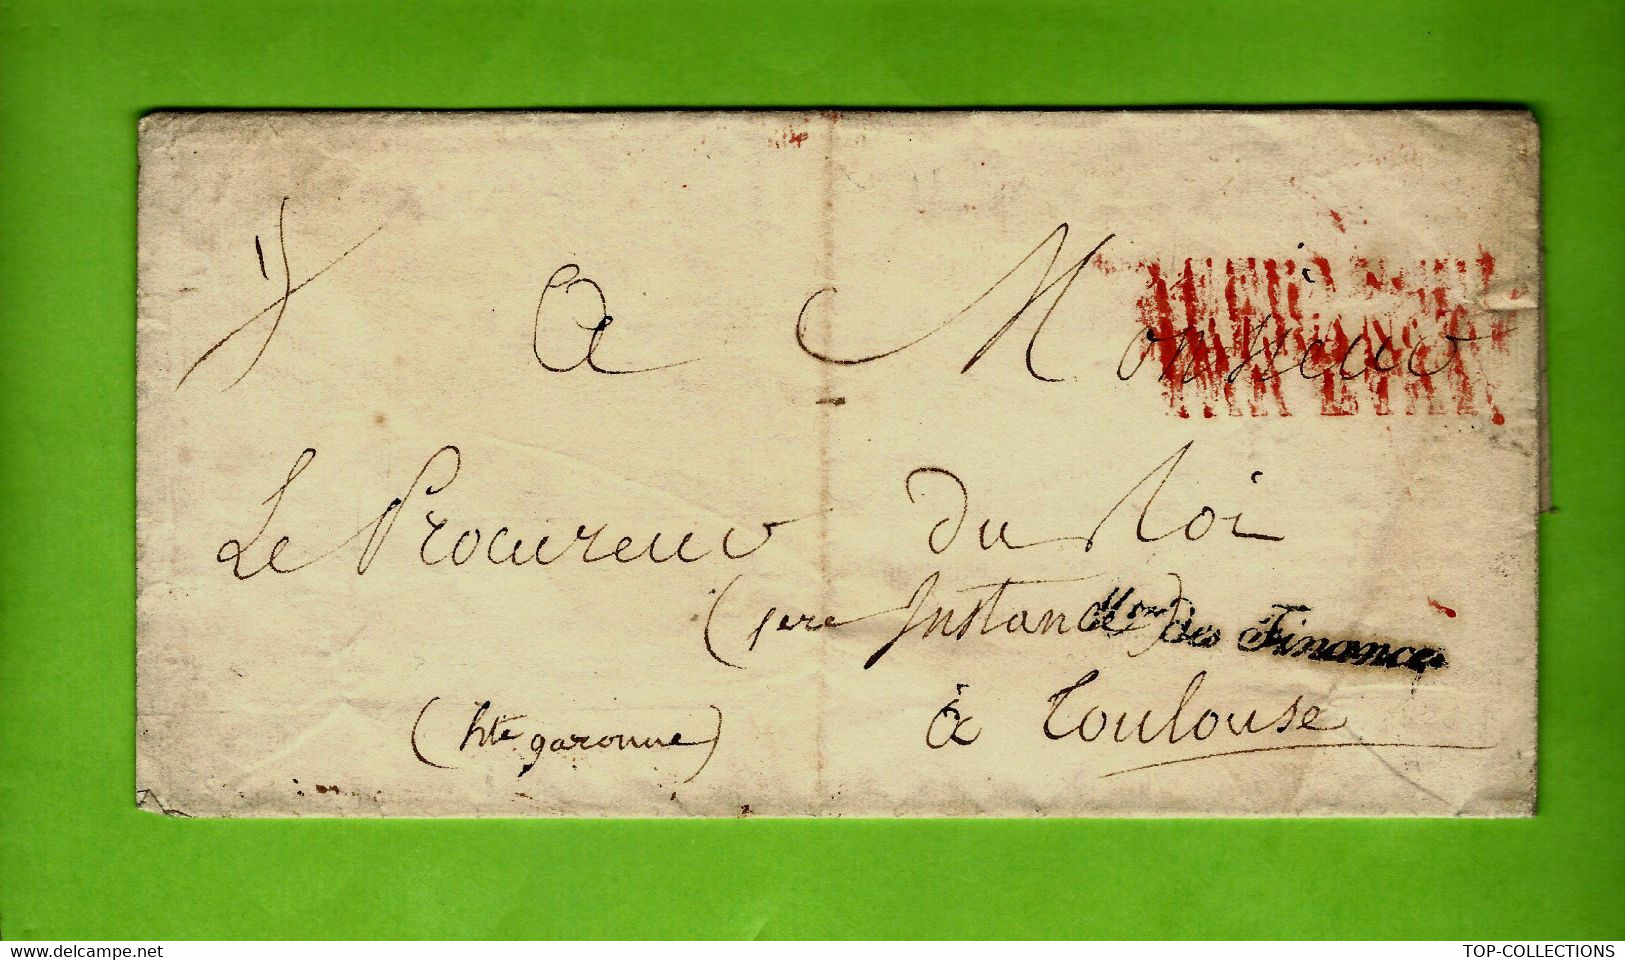 A Monsieur
Le Procureur du Roi
(1ere Instance)
Mon des Finances
(hte garonne) à Toulouse
www.delcampe.net
TOP-COLLECTIONS